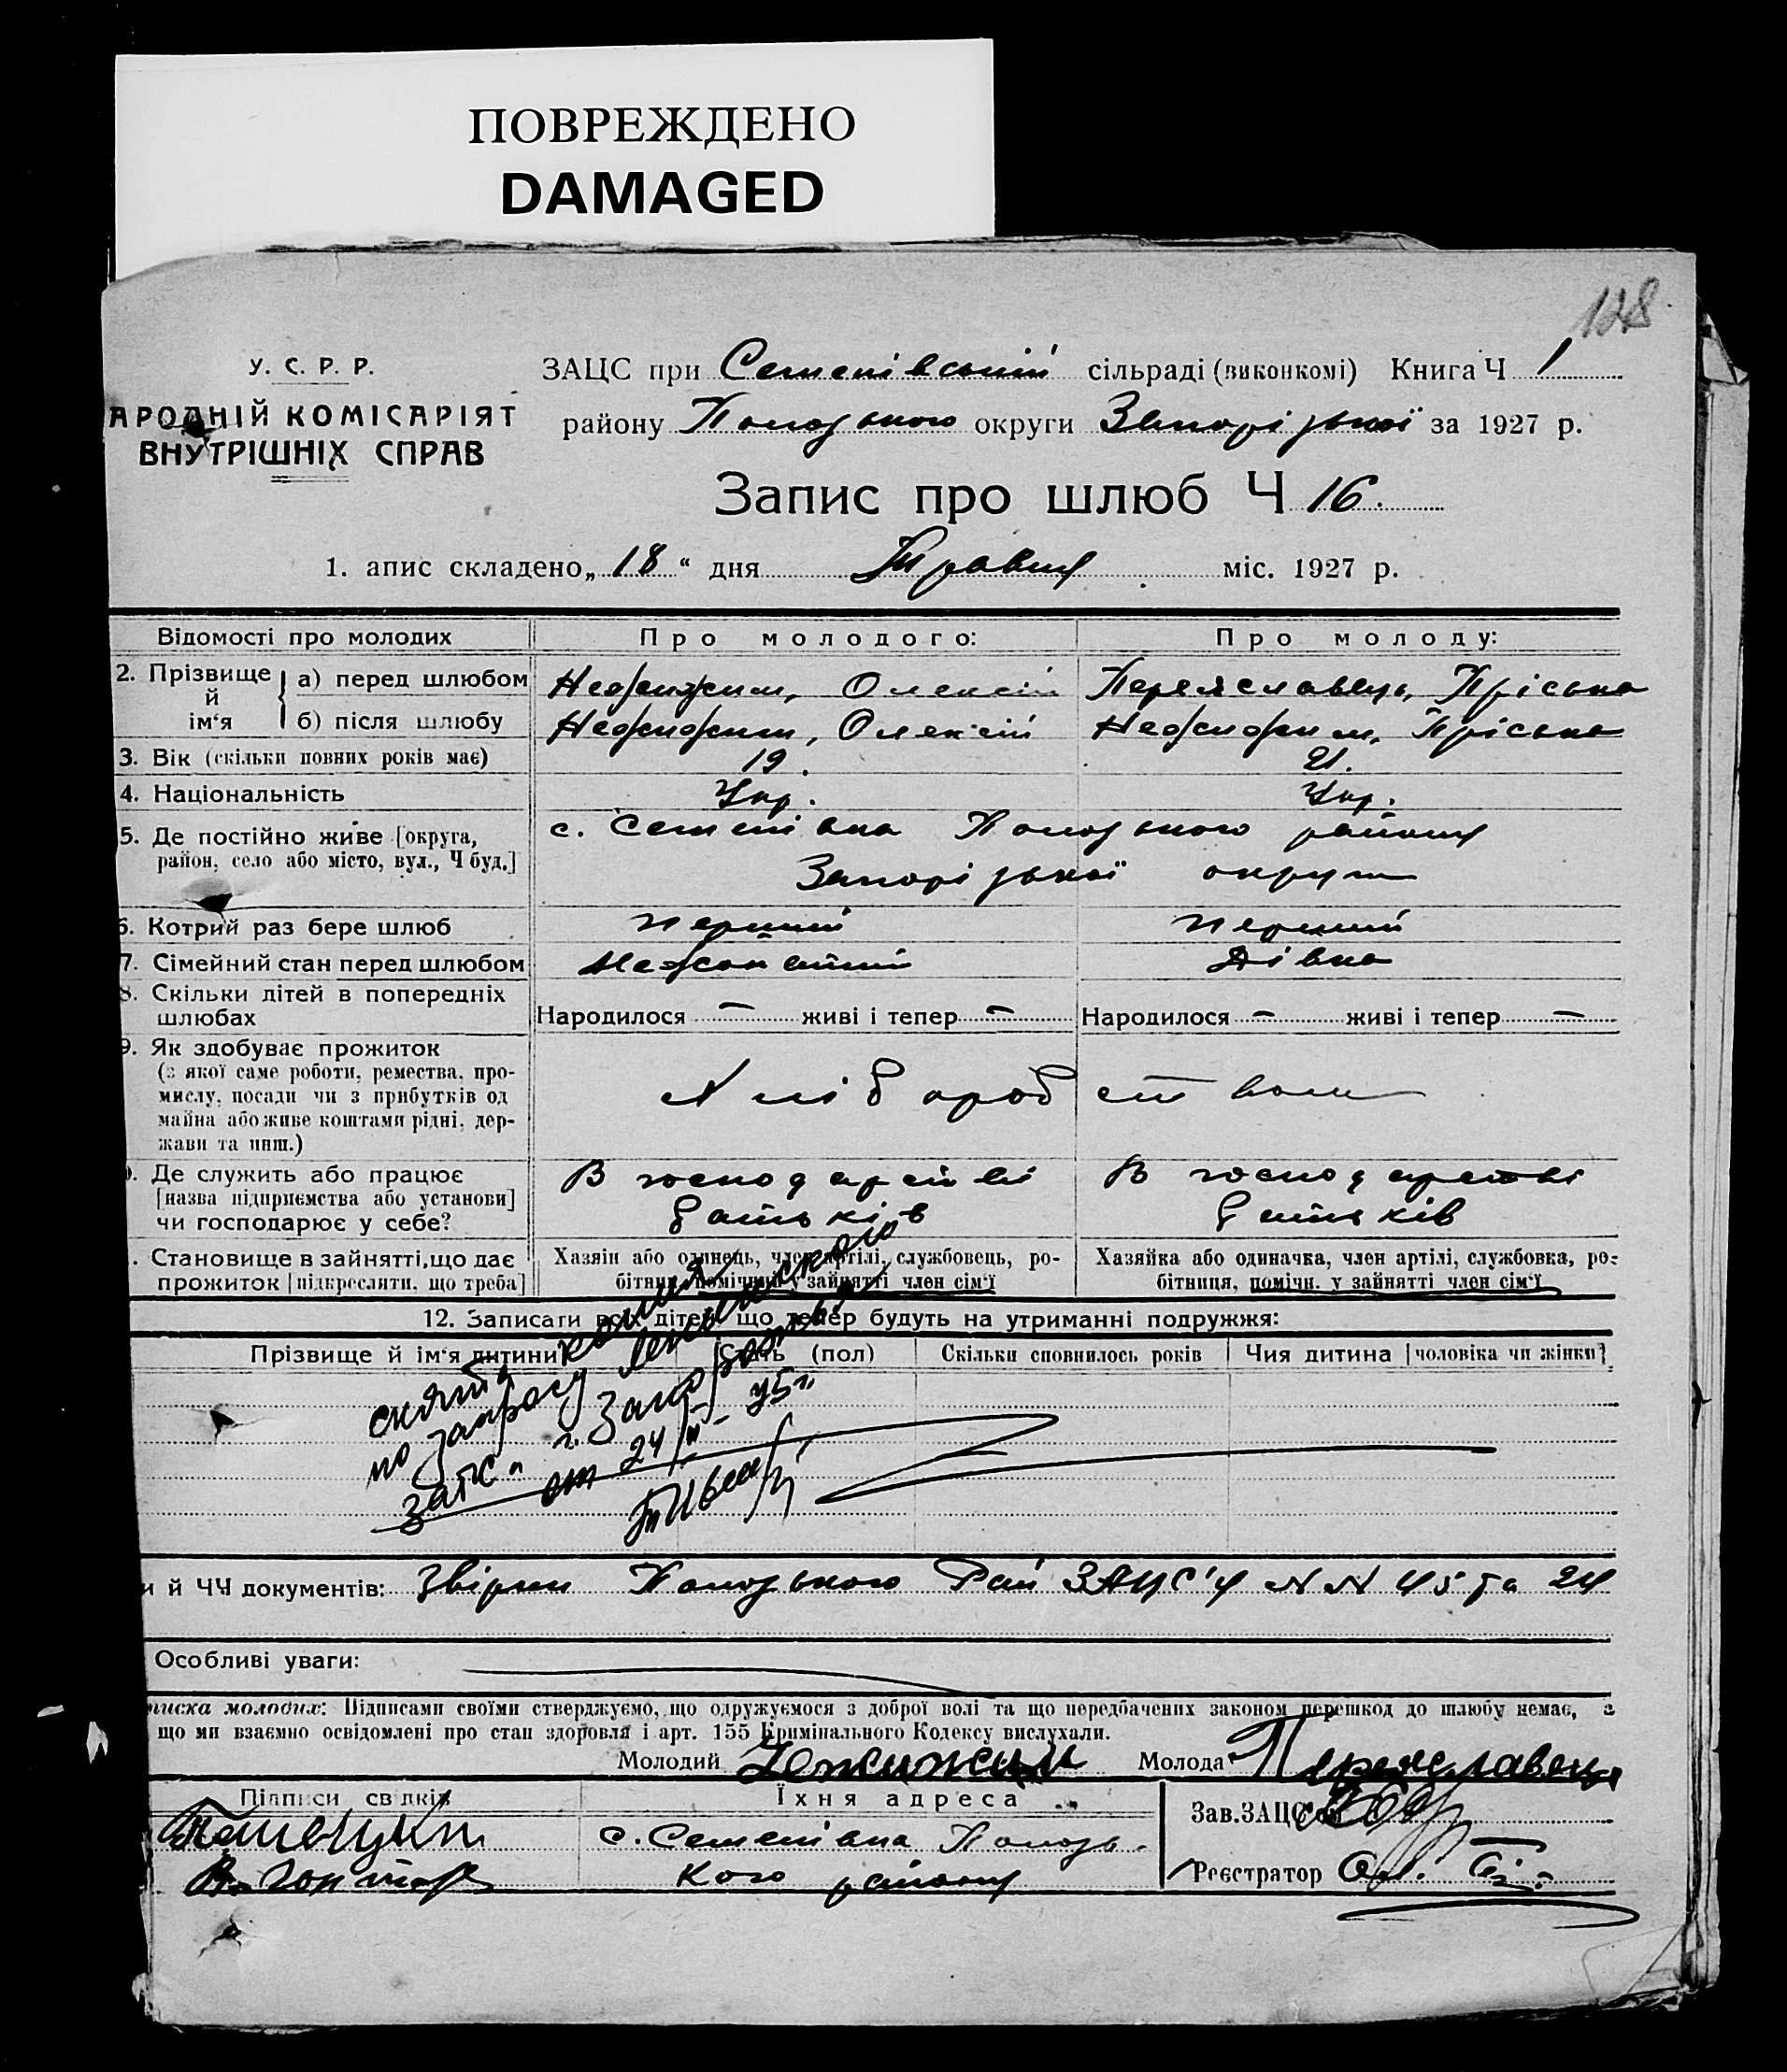 ПОВРЕЖДЕНО
DAMAGED
128
У. С. Р. Р.
АРОДНІЙ КОМІСАРІЯТ
ВНУТРІШНІХ СПРАВ
ЗАЦС при Семенівській сільраді (виконкомі) Книга Ч 1
району Пологького округи Запорізької за 1927 р.
Запис про шлюб Ч 16.
1. апис складено „18“ дня Травня міс. 1927 р.
Відомості про молодих Про молодого: Про молоду:
2. Прізвище й ім‘я а) перед шлюбом Нежижим, Олексій Переяславець, Пріська
б) після шлюбу Нежижим, Олексій Нежижим, Пріська
3. Вік (скільки повних років має) 19. 21.
4. Національність Укр. Укр.
5. Де постійно живе [округа, с. Семенівка Пологького району
район, село або місто, вул., Ч буд.] Запорізької округи
6. Котрий раз бере шлюб перший перший
7. Сімейний стан перед шлюбом Нежонатий Дівка
8. Скільки дітей в попередніх
шлюбах Народилося — живі і тепер — Народилося — живі і тепер —
9. Як здобуває прожиток
(з якої саме роботи, ремества, про-
мислу, посади чи з прибутків од Хліборобством
майна або живе коштами рідні, дер-
жави та инш.)
). Де служить або працює В господарстві В господарстві
[назва підприємства або установи] батьків батьків
чи господарює у себе?
. Становище в зайнятті, що дає Хазяїн або одинець, член артілі, службовець, ро- Хазяйка або одиначка, член артілі, службовка, ро-
прожиток [підкреслити, що треба] бітник, помічник у зайнятті член сім‘ї бітниця, помічн. у зайнятті член сім‘ї
12. Записати всіх дітей, що тепер будуть на утриманні подружжя:
Прізвище й ім‘я дитини Стать (пол) Скільки сповнилось років Чия дитина [чоловіка чи жінки]
снята копия
по запросу Ленинского
ЗАГС г. Запорожья
от 24/II-75г.
и й ЧЧ документів: Звірки Пологького Рай ЗАЦС'у NN 45 та 24
Особливі уваги:
писка молодих: Підписами своїми стверджуємо, що одружуємося з доброї волі та що передбачених законом перешкод до шлюбу немає, а
що ми взаємно освідомлені про стан здоровля і арт. 155 Кримінального Кодексу вислухали.
Молодий Нежижим Молода Переяславець
Підписи свідків Їхня адреса Зав. ЗАЦС'ом
с. Семенівка Пологь-
В. Гонтар кого району Реєстратор